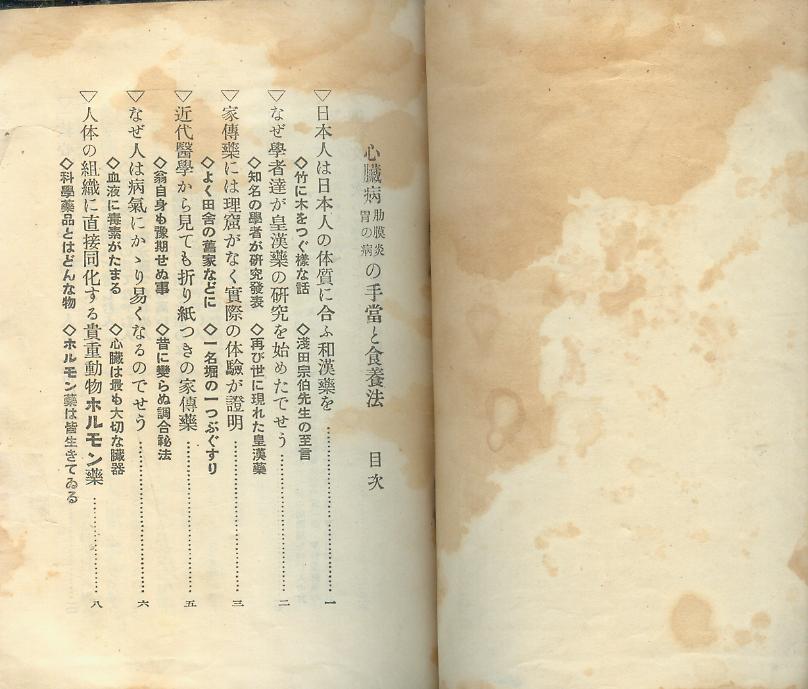 心臟病肋膜炎胃の病の手當と食養法 目次
▽日本人は日本人の体質に合ふ和漢藥を……一
◇竹に木をつぐ樣な話 ◇淺田宗伯先生の至言
▽なぜ學者達が皇漢藥の研究を始めたでせう……二
◇知名の學者が硏究發表 ◇再び世に現れた皇漢藥
▽家傳藥には理窟がなく實際の体驗が證明……三
◇よく田舎の舊家などに ◇一名堀の一つぶぐすり
▽近代醫學から見ても折り紙つきの家傳藥……五
◇翁自身も豫期せぬ事 ◇昔に變らぬ調合祕法
▽なぜ人は病氣にかゝり易くなるのでせう……六
◇血液に毒素がたまる ◇心臟は最も大切な臟器
▽人体の組織に直接同化する貴重動物ホルモン藥……八
◇科學藥品とはどんな物 ◇ホルモン藥は皆生きてゐる